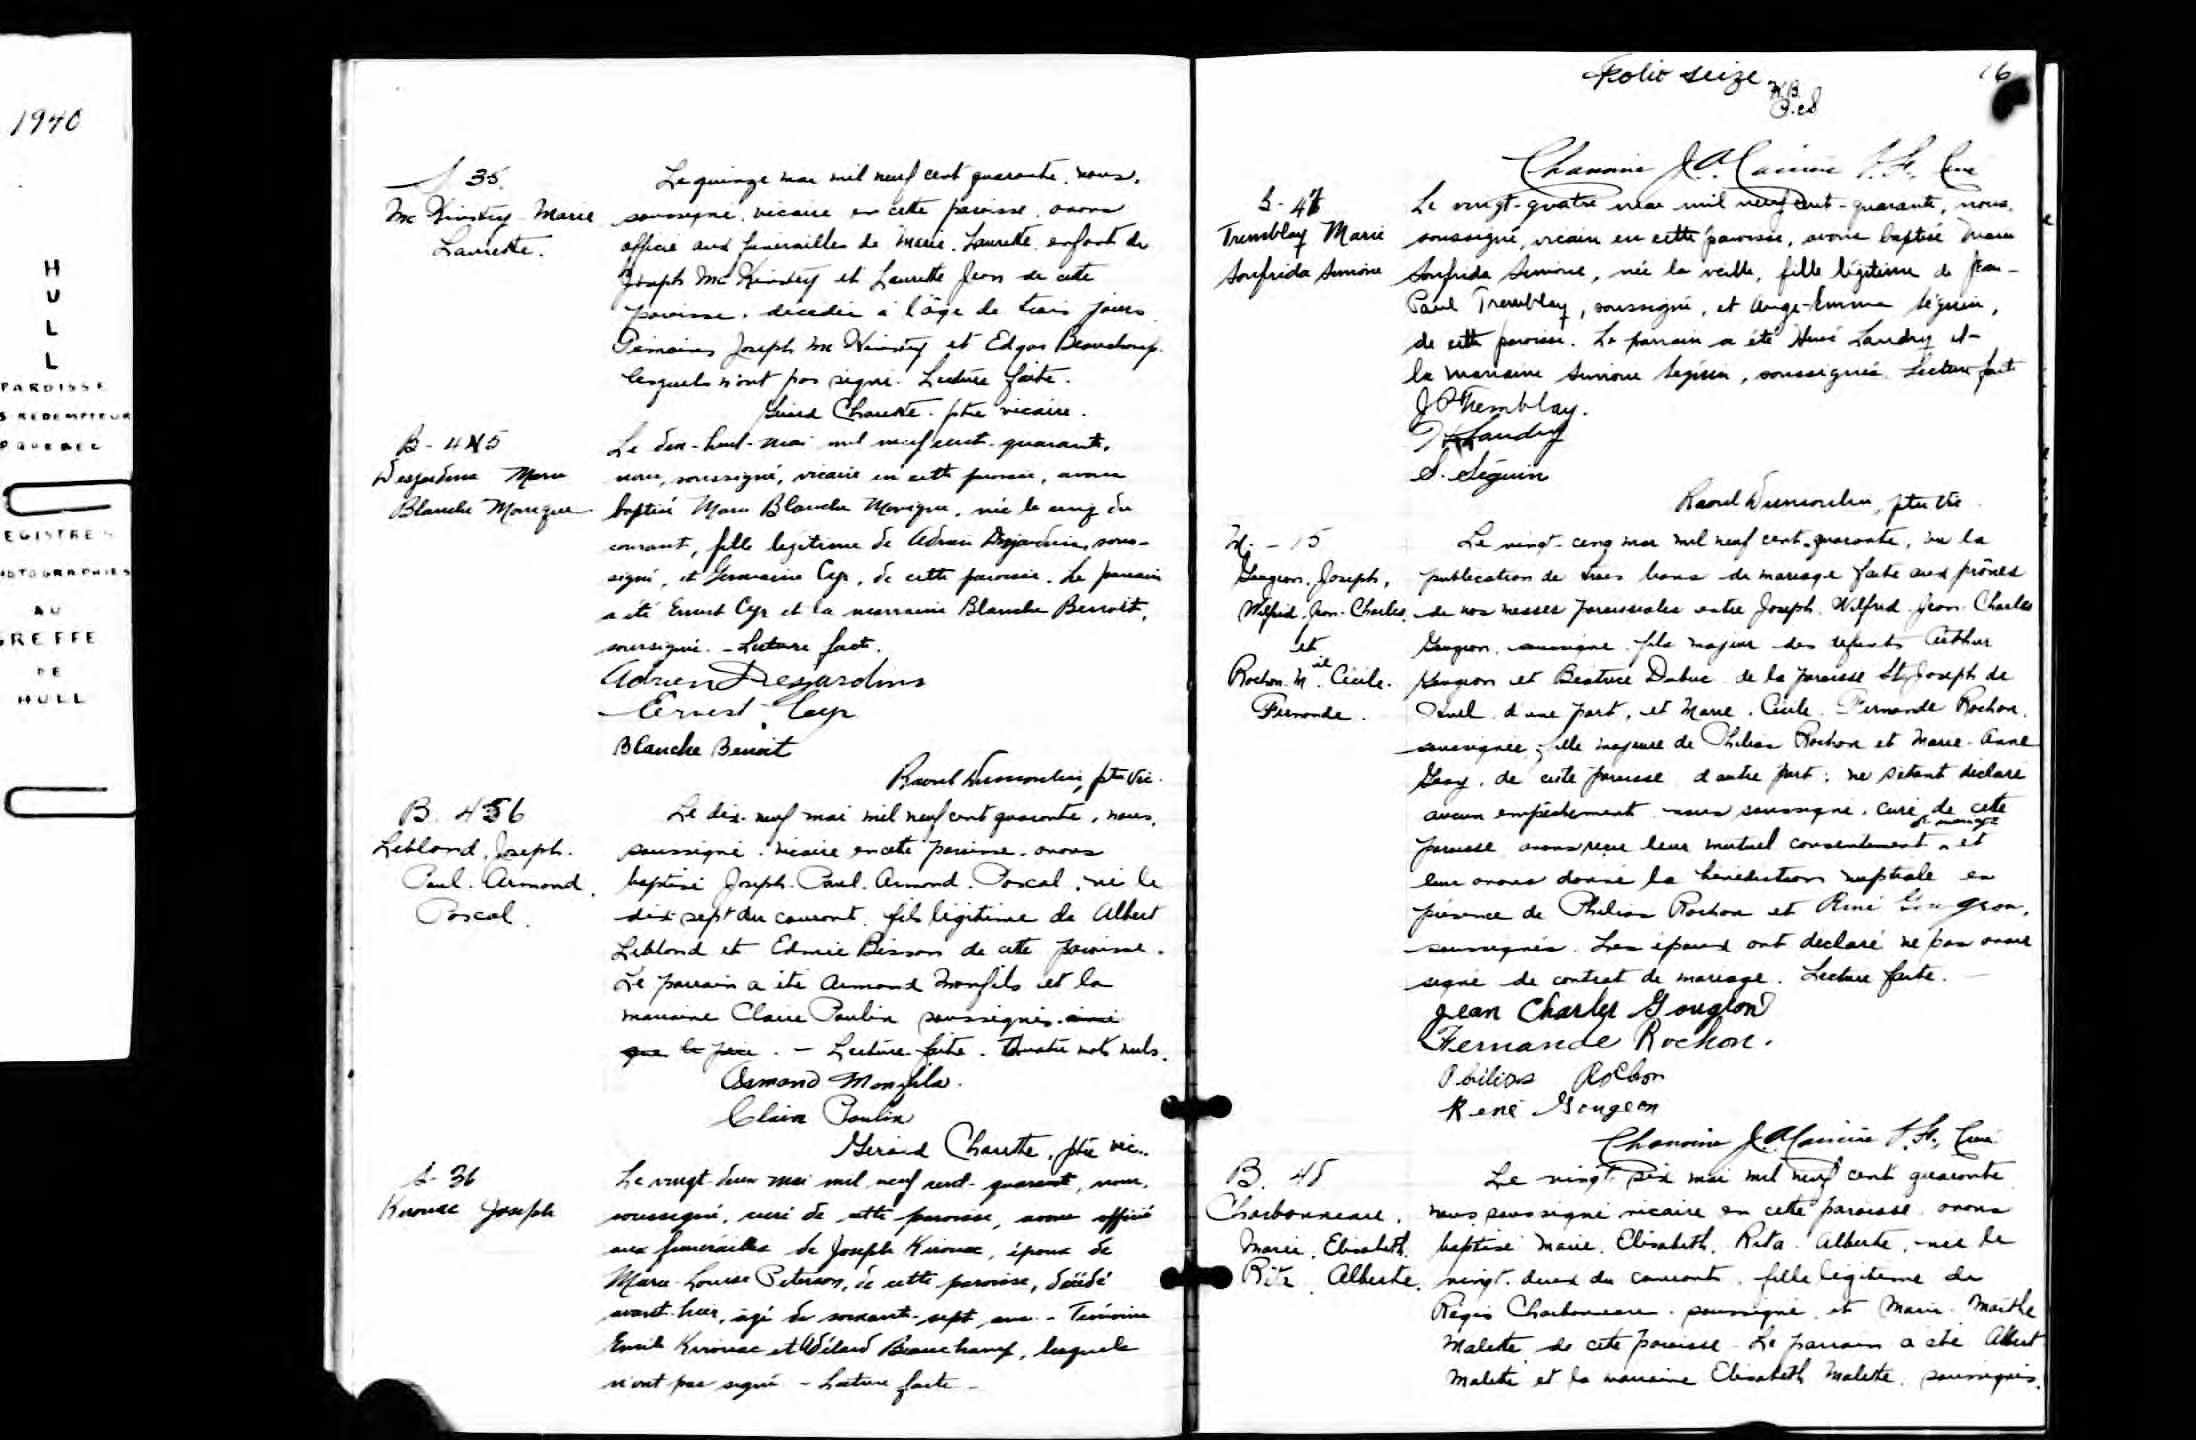 1940
H
U
L
L
PAROISSE
REDEMPTEUR
QUEBEC
REGISTRES
PHOTOGRAPHIES
AU
GREFFE
DE
HULL
S 35.
Mc Kinstry Marie
Laurette.
Le quinze mai mil neuf cent quarante, nous,
soussigné, vicaire en cette paroisse, avons
officié aux funérailles de Marie. Laurette, enfant de
Joseph Mc Kinstry et Laurette Jean de cette
paroisse, décédée à l'âge de trois jours.
Témoins Joseph Mc Kinstry et Edgar Beauchamp.
lesquels n'ont pas signé. Lecture faite.
Gérard Charette. ptre vicaire.
B - 45
Desjardins Marie
Blanche Monique
Le dix-huit mai mil neuf cent-quarante,
nous, soussigné, vicaire en cette paroisse, avons
baptisé Marie Blanche Monique, née le cinq du
courant, fille légitime de Adrien Desjardins, sous-
signé, et Germaine Cyr, de cette paroisse. Le parrain
a été Ernest Cyr et la marraine Blanche Benoit,
soussignés. - Lecture faite.
Adrien Desjardins
Ernest Cyr
Blanche Benoit
Raoul Dumoulin, ptre vic.
B. 46
Leblond, Joseph.
Paul. Armand.
Pascal.
Le dix-neuf mai mil neuf cent quarante, nous,
soussigné, vicaire en cette paroisse, avons
baptisé Joseph. Paul. Armand. Pascal, né le
dix-sept du courant, fils légitime de Albert
Leblond et Edmée Bisson de cette paroisse.
Le parrain a été Armand Monfils et la
marraine Claire Paulin soussignés. ainsi
que le père. - Lecture faite. Quatre mots nuls.
Armand Monfils.
Claire Paulin
Gérard Charette, ptre vic.
S - 36
Kirouac Joseph
Le vingt-deux mai mil neuf cent-quarante, nous,
soussigné, curé de cette paroisse, avons officié
aux funérailles de Joseph Kirouac, époux de
Marie-Louise Peterson, de cette paroisse, décédé
avant-hier, âgé de soixante-sept ans. - Témoins
Emile Kirouac et Wélard Beauchamp, lesquels
n'ont pas signé - Lecture faite -
Folio seize
16
Chanoine J.A. Carrière V.F., Curé
B - 47
Tremblay Marie
Simone
Le vingt-quatre mai mil neuf cent-quarante, nous,
soussigné, vicaire en cette paroisse, avons baptisé Marie
Simone, née la veille, fille légitime de Jean-
Paul Tremblay, soussigné, et Ange-Emma Séguin,
de cette paroisse. Le parrain a été Hervé Landry et
la marraine Simone Séguin, soussignés. Lecture faite
J P Tremblay.
H. Landry
S. Séguin
Raoul Dumoulin, ptre vic
M. - 15
Gougeon. Joseph,
Wilfrid. Jean-Charles.
et
Rochon. Cécile.
Fernande.
Le vingt-cinq mai mil neuf cent-quarante, vu la
publication de trois bans de mariage faite aux prônes
de nos messes paroissiales entre Joseph. Wilfrid. Jean. Charles
Gougeon, soussigné, fils majeur des défunts Arthur
Gougeon et Béatrice Dubuc de la paroisse St Joseph de
d'une part, et Marie. Cécile. Fernande Rochon,
soussignée, fille majeure de Philias Rochon et Marie-Anne
de cette paroisse d'autre part; ne s'étant déclaré
aucun empêchement nous soussigné, curé de cette
de mariage
paroisse avons reçu leur mutuel consentement et
leur avons donné la bénédiction nuptiale en
présence de Philias Rochon et René Gougeon,
soussignés. Les époux ont déclaré ne pas avoir
signé de contrat de mariage. Lecture faite. -
Jean Charles Gougeon
Fernande Rochon.
Philias Rochon
René Gougeon
Chanoine J.A. Carrière V.F., Curé
B. 48
Charbonneau.
Marie. Elisabeth.
Rita. Alberte.
Le vingt-six mai mil neuf cent quarante
nous soussigné vicaire en cette paroisse avons
baptisé Marie. Elisabeth. Rita. Alberte, née le
vingt-deux du courant, fille légitime de
Régis Charbonneau. soussigné, et Marie-Marthe
Malette de cette paroisse. Le parrain a été Albert
Malette et la marraine Elisabeth Malette, soussignés.